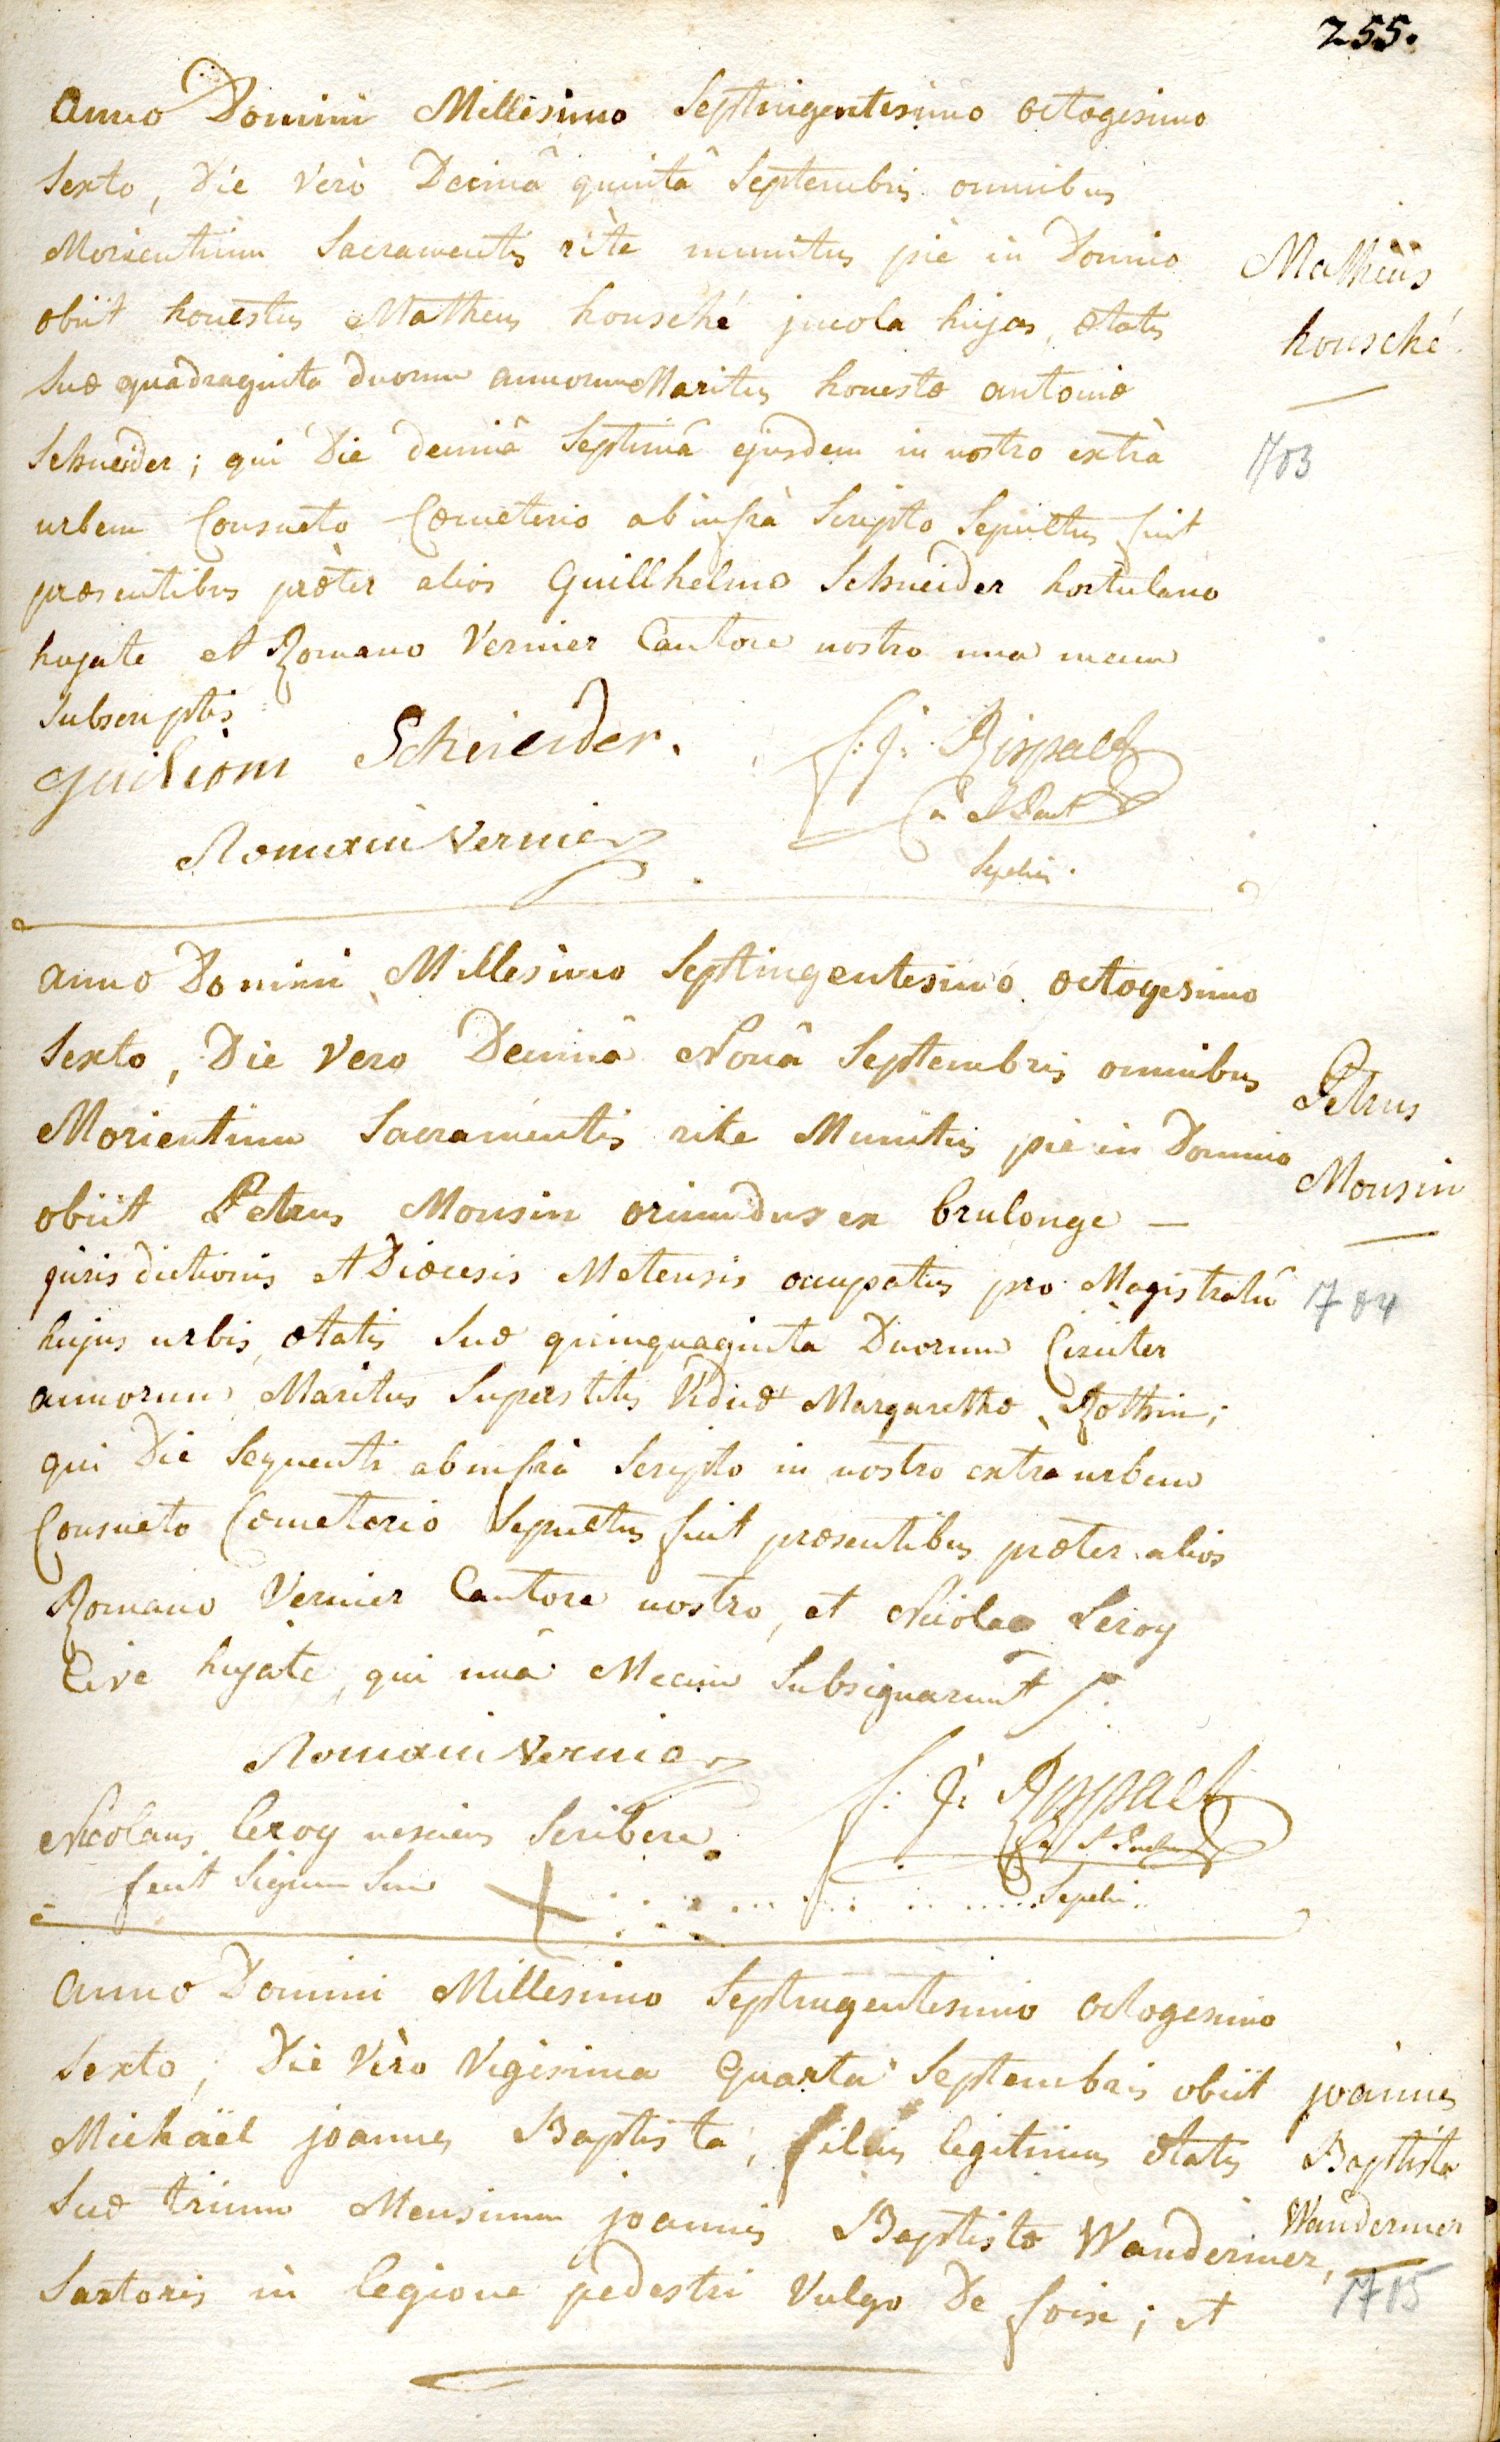 255.
Anno Domini Millesimo Septingentesimo octogesimo
Sexto, Die Verò Decimâ quintâ Septembris omnibus
Morientium Sacramentis rìte munitus piè in Domino
obiit honestus Matheus housché jncola hujas, ætatis
Suæ quadraginta duorum annorum Maritus honestæ antoniæ
Schneider; qui Die decimâ Septimâ ejusdem in nostro extrà
urbem Consueto Cœmeterio ab infrà Scripto Sepultus fuit
præsentibus præter alios Guillhelmo Schneider hortulano
hujate et Romano Vernier Cantore nostro una mecum
Subscriptis
Matheus
housché
1703
guiliom Schneider.
f: j: Rispalt
C a St Pault
Romain Vernier
Sepelivi.
anno Domini Millesimo Septingentesimo octogesimo
Sexto, Die Vero Decimâ Nonâ Septembris omnibus
Morientium Sacramentis rite Munitus piè in Domino
obiit Petrus Mousin oriundus ex brulonge —
jurisdictionis et Diœcesis Metensis occupatus pro Magistratû
hujus urbis, ætatis Suæ quinquaginta Duorum Circiter
annorum, Maritus Superstitis Viduæ Margarethæ Rothin;
qui Die Sequenti ab infrà Scripto in nostro extra urbem
Consueto Cœmeterio Sepultus fuit præsentibus præter alios
Romano Vernier Cantore nostro, et Nicolao Leroy
Cive hujate, qui unâ Mecum Subsignarunt
Petrus
Mousin
1704
Romain Vernier
f: j: Rispalt
Nicolaus leroy nesciens Scribere
fecit Signum Suum
Sepelivi
Anno Domini Millesimo Septingentesimo octogesimo
Sexto, Die Vèro Vigesima Quarta Septembris obiit
Michäel joannes Baptista, filius legitimus ætatis
Suæ trium Mensium joannis Baptistæ Wanderiner,
Sartoris in legione pedestri Vulgo De foix; et
joannes
Baptista
Wanderiner
1705